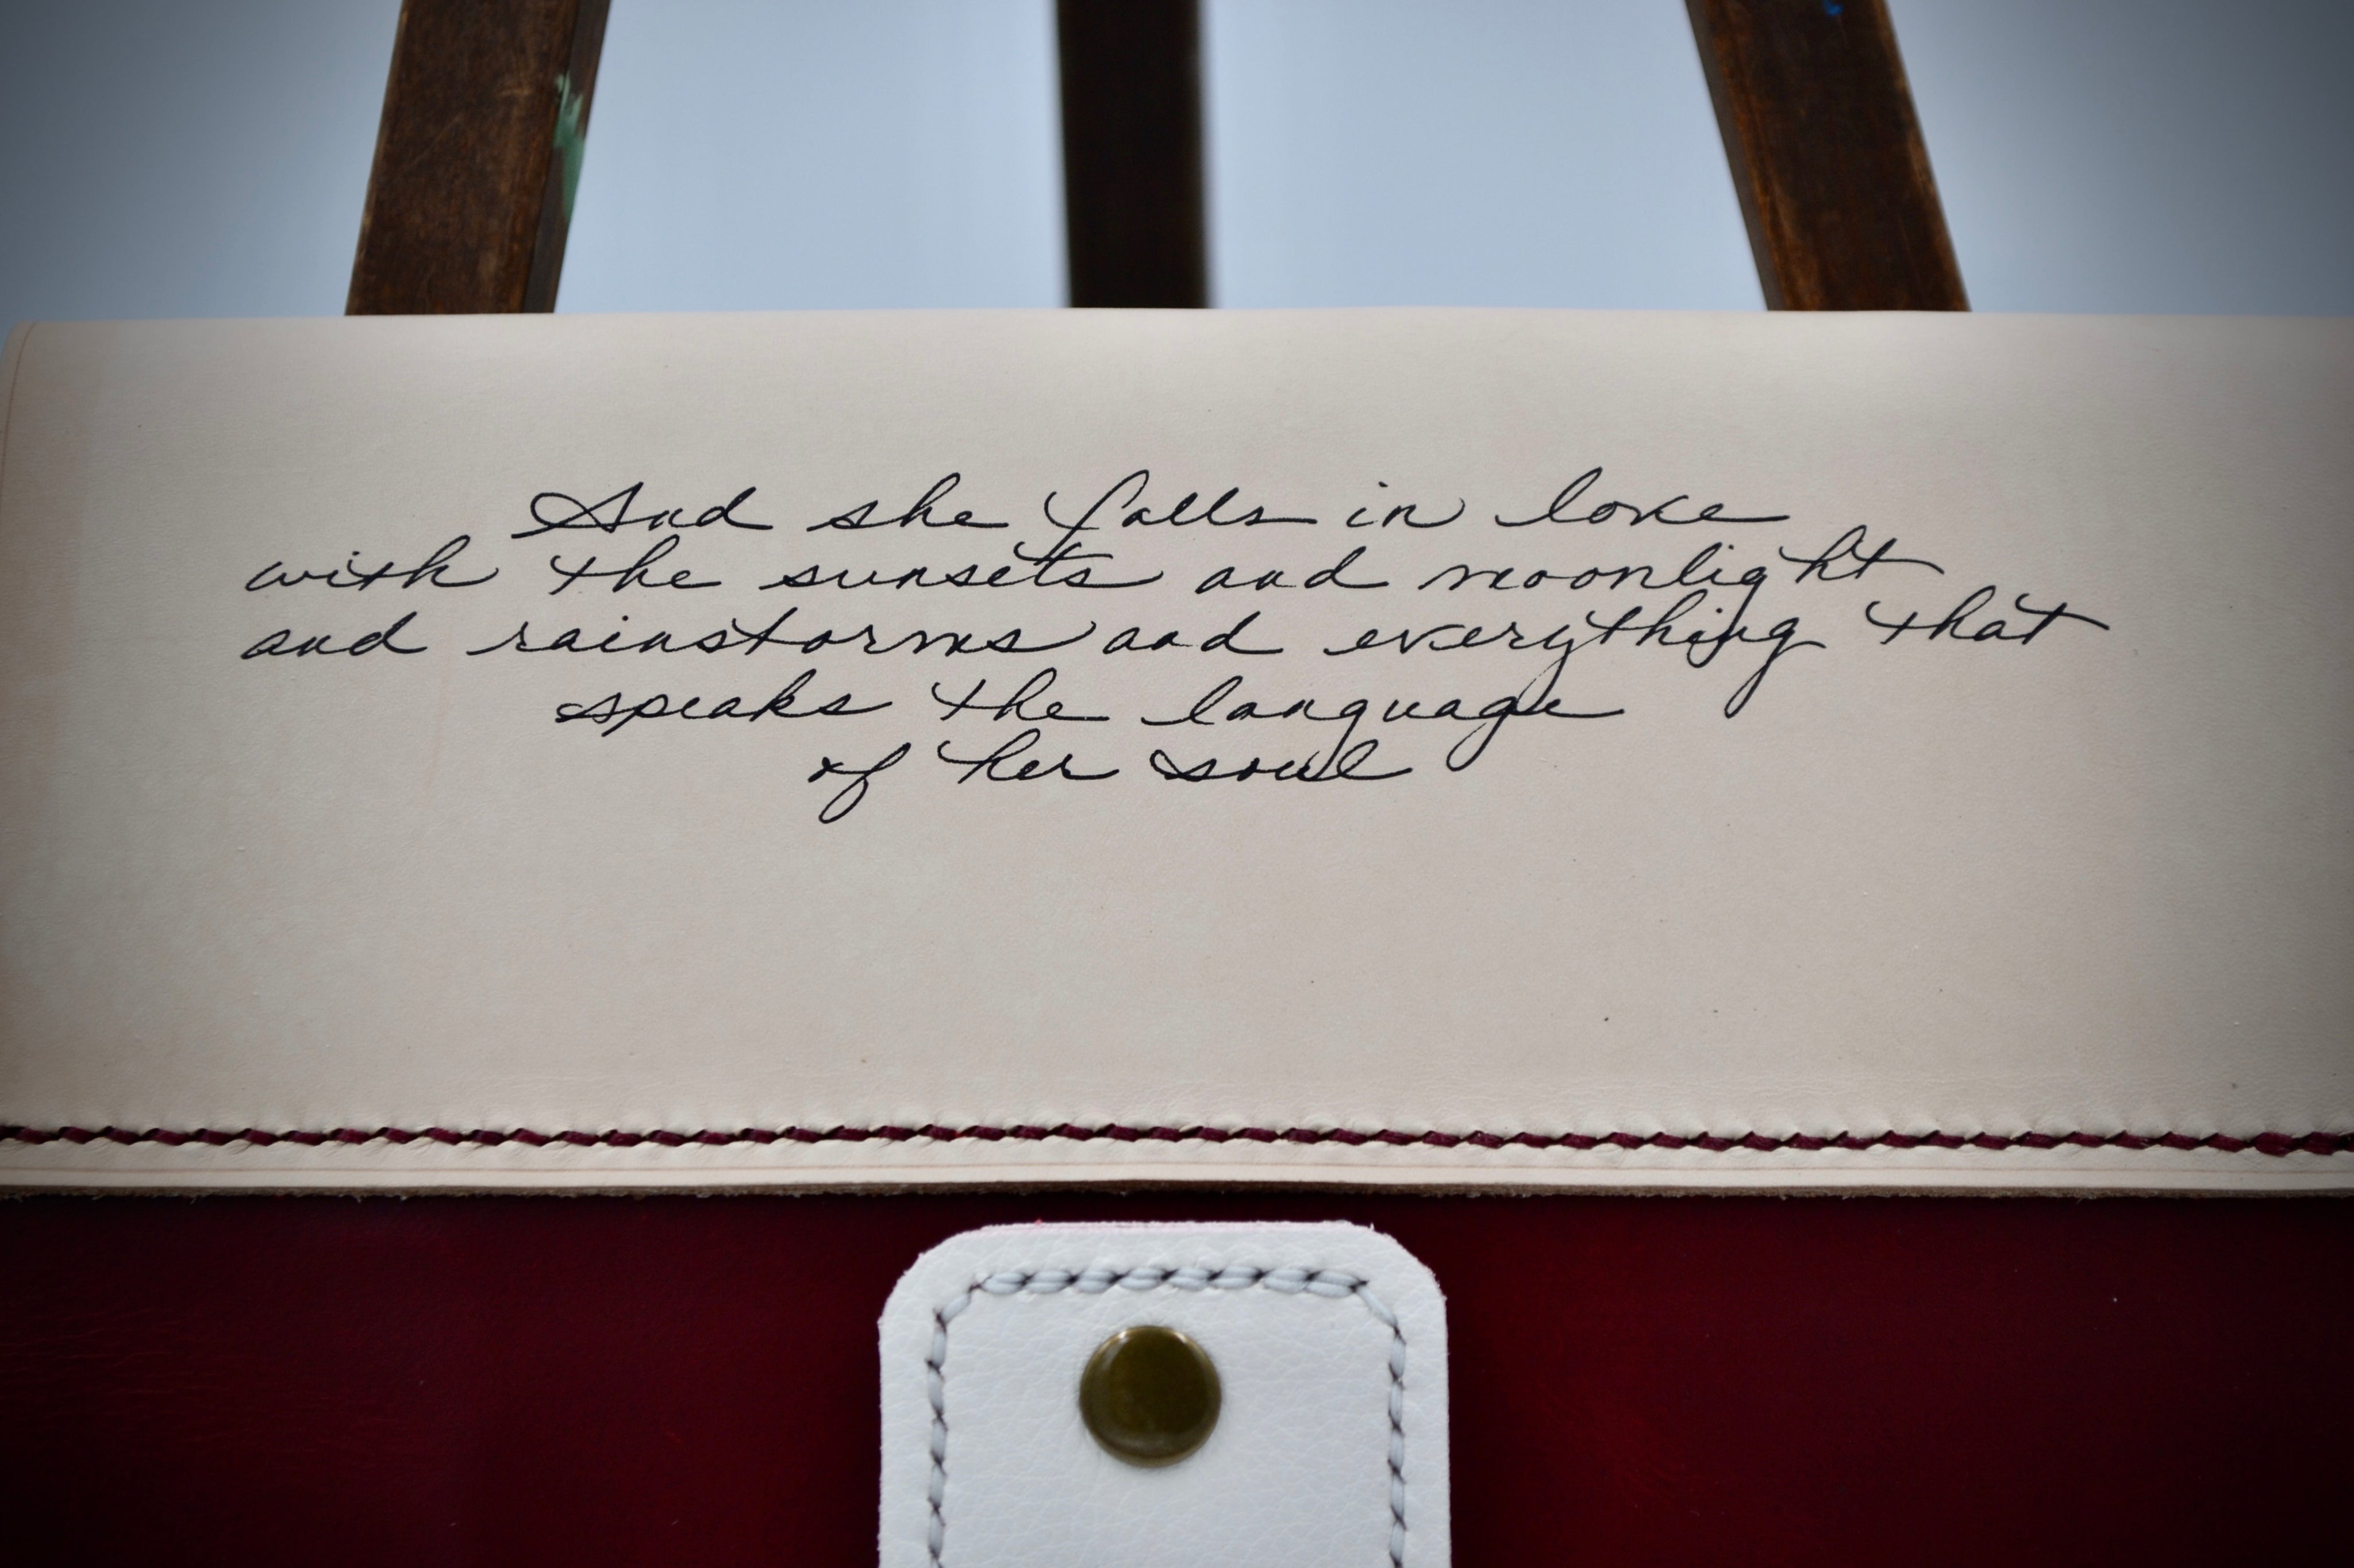 And she falls in love
with the sunsets and moonlight
and rainstorms and everything that
speaks the language
of her soul